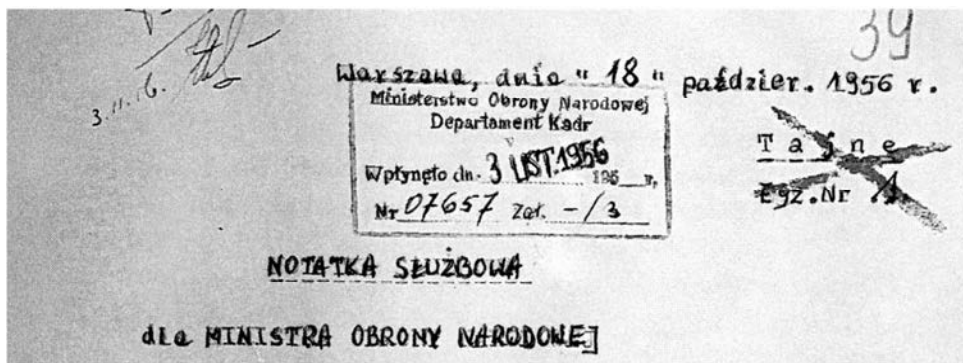 39
3.11.16.
Warszawa, dnia "18" paździer. 1956 r.
Ministerstwo Obrony Narodowej
Departament Kadr
Wpłynęło dn. 3 LIST. 1956 195 r.
Nr 07657 Zał. -/3
Tajne
Egz. Nr 1
NOTATKA SŁUŻBOWA
dla MINISTRA OBRONY NARODOWEJ